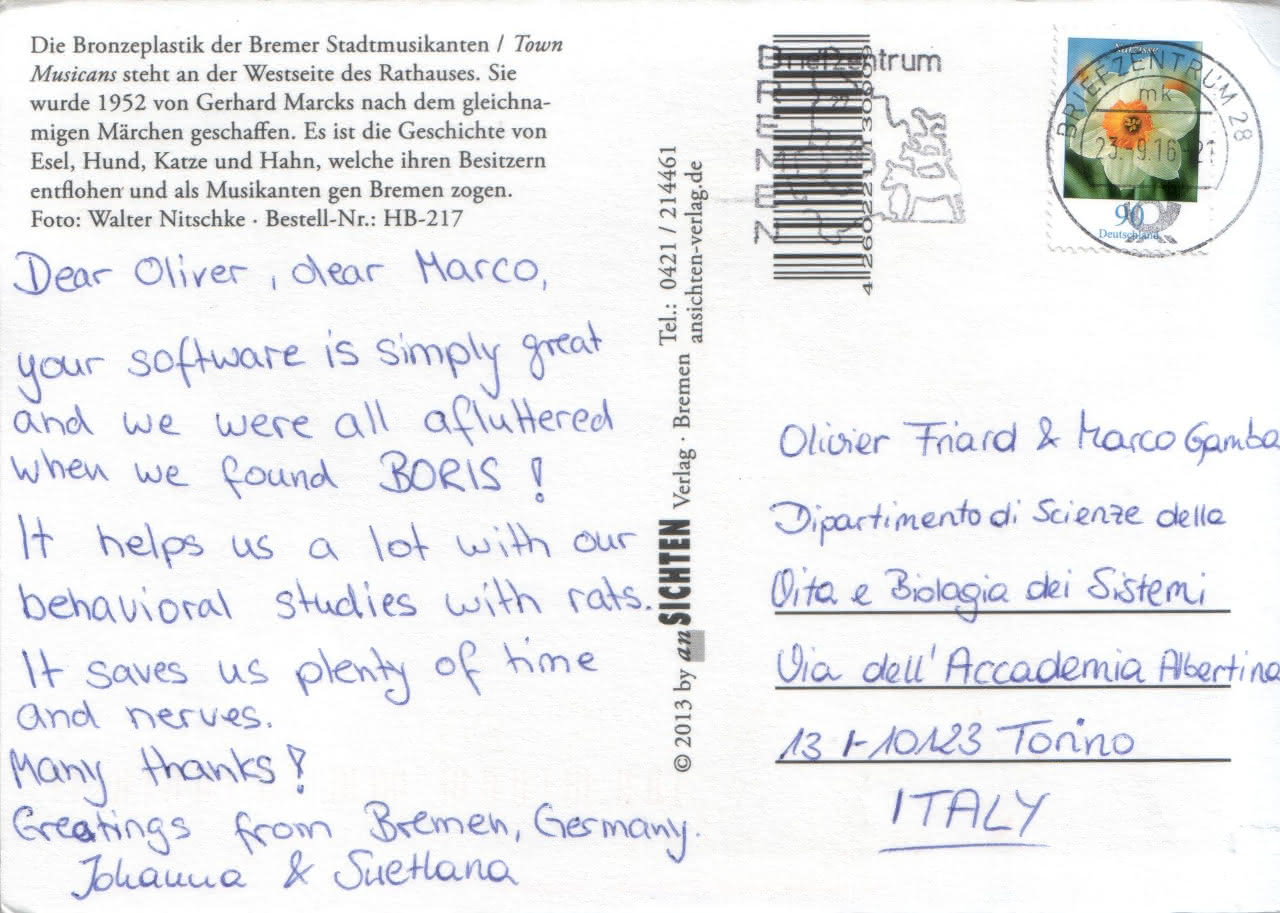 Die Bronzeplastik der Bremer Stadtmusikanten / Town
Musicans steht an der Westseite des Rathauses. Sie
wurde 1952 von Gerhard Marcks nach dem gleichna-
migen Märchen geschaffen. Es ist die Geschichte von
Esel, Hund, Katze und Hahn, welche ihren Besitzern
entflohen und als Musikanten gen Bremen zogen.
Foto: Walter Nitschke · Bestell-Nr.: HB-217
Dear Oliver, dear Marco,
your software is simply great
and we were all afluttered
when we found BORIS!
It helps us a lot with our
behavioral studies with rats.
It saves us plenty of time
and nerves.
Many thanks!
Greatings from Bremen, Germany.
Johanna & Svetlana
© 2013 by anSICHTEN Verlag · Bremen Tel.: 0421 / 214461
ansichten-verlag.de
Briefzentrum
BREMEN
Narzisse
90
Deutschland
BRIEFZENTRUM 28
mk
23.9.16-21
Olivier Friard & Marco Gamba
Dipartimento di Scienze della
Vita e Biologia dei Sistemi
Via dell'Accademia Albertina
13 I-10123 Torino
ITALY